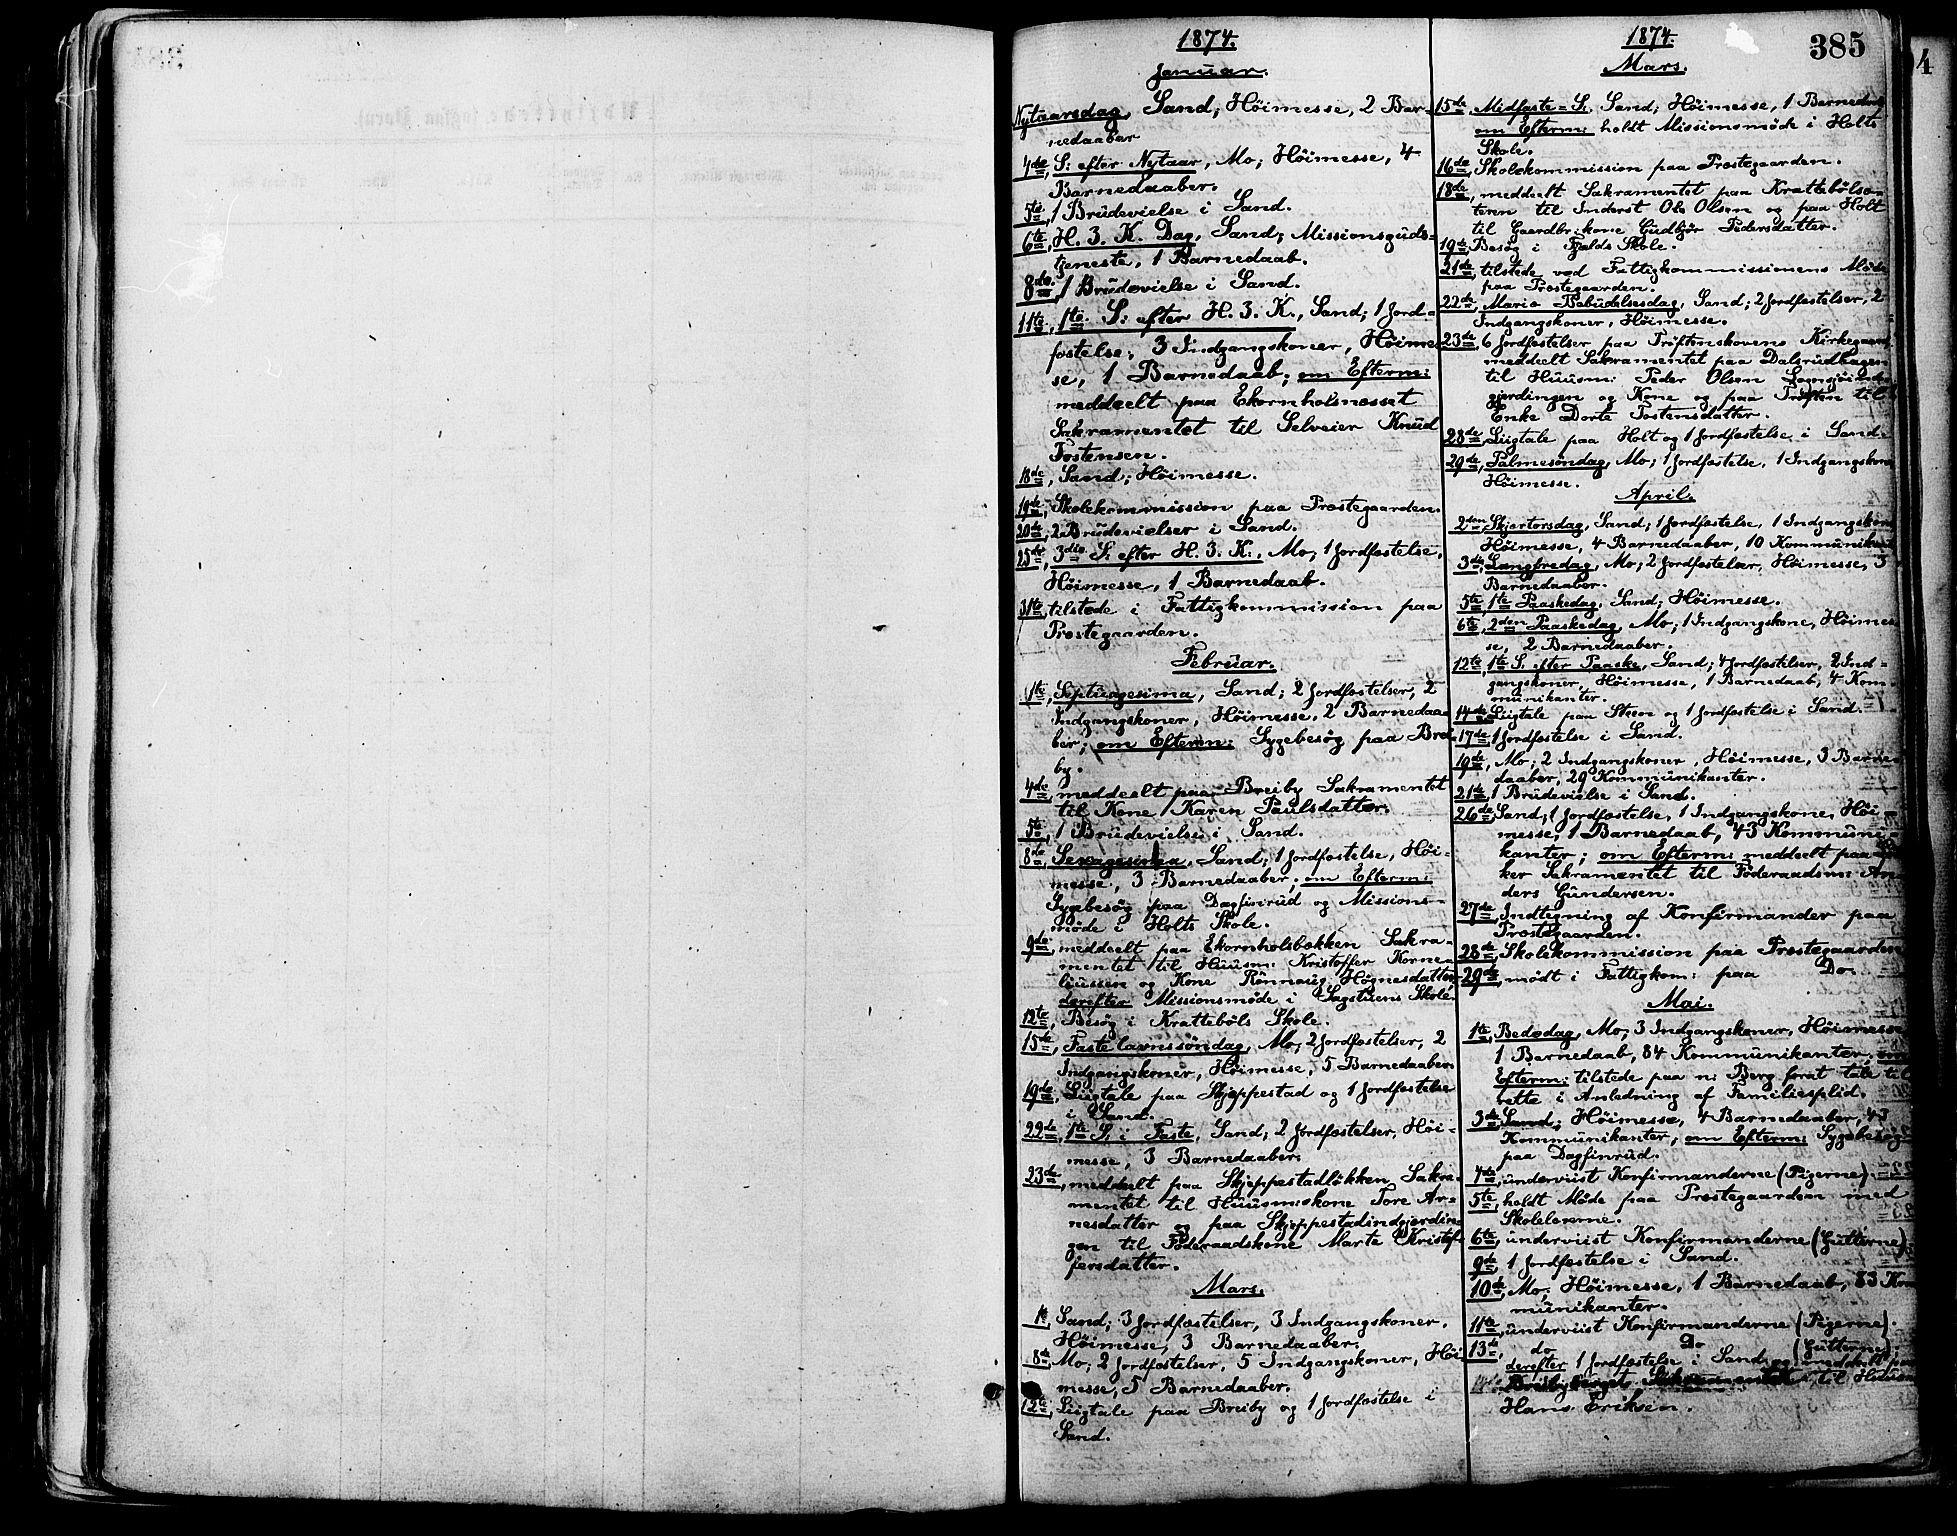 385
1874.
Januar.
Nytaarsdag, Sand; Höimesse, 2 Bar-
nedaaber
4de, S: efter Nytaar, Mo; Höimesse, 4
Barnedaaber.
5te, 1 Brudevielse i Sand.
6te, H. 3. K. Dag, Sand; Missionsguds-
tjeneste, 1 Barnedaab.
8de, 1 Brudevielse i Sand.
11te, 1te S: efter H. 3. K., Sand; 1 Jord-
fæstelse, 3 Indgangskoner, Höimes-
se, 1 Barnedaab; om Efterm:
meddeelt paa Ekornholsnesset
Sakramentet til Selveier Knud
Tostensen.
18de, Sand; Höimesse.
19de, Skolekommission paa Præstegaarden.
20de, 2 Brudevielser i Sand.
25de, 3die S: efter H. 3. K., Mo; 1 Jordfæstelse,
Höimesse, 1 Barnedaab.
31te, tilstede i Fattigkommission paa
Præstegaarden.
Februar.
1te, Septuagesima, Sand; 2 Jordfæstelser, 2
Indgangskoner, Höimesse, 2 Barnedaa-
ber; om Efterm: Sygebesög paa Brei-
by.
4de, meddeelt paa Breiby Sakramentet
til Kone Karen Paulsdatter.
5te, 1 Brudevielse i Sand.
8de, Sexagesima, Sand; 1 Jordfæstelse, Höi-
messe, 3 Barnedaaber; om Efterm:
Sygebesög paa Dagfinrud og Missions-
möde i Holts Skole.
9de, meddeelt paa Ekornholsbækken Sakra-
mentet til Huusm: Kristoffer Korne-
liussen og Kone Rönnaug Högnesdatter,
derefter Missionsmöde i Sagstuens Skole.
12te, Besög i Kratteböls Skole.
15de, Fastelavnssöndag, Mo; 2 Jordfæstelser, 2
Indgangskoner, Höimesse, 5 Barnedaaber.
19de, Liigtale paa Skjeppestad og 1 Jordfæstelse
i Sand.
22de, 1te S: i Faste, Sand; 2 Jordfæstelser, Höi-
messe, 3 Barnedaaber.
23de, meddeelt paa Skjeppestadlökken Sakra-
mentet til Huusm:kone Tore Ar-
nesdatter og paa Skjeppestadindgjerdin-
gen til Föderaadskone Marte Kristof-
fersdatter.
Mars.
1te, Sand; 3 Jordfæstelser, 3 Indgangskoner,
Höimesse, 3 Barnedaaber.
8de, Mo; 2 Jordfæstelser, 5 Indgangskoner, Höi-
messe, 5 Barnedaaber.
12te, Liigtale paa Breiby og 1 Jordfæstelse i
Sand.
1874.
Mars.
15de, Midfaste-S: Sand; Höimesse, 1 Barnedaab,
om Efterm: holdt Missionsmöde i Holts
Skole.
16de, Skolekommission paa Præstegaarden.
18de, meddeelt Sakramentet paa Krattebölsæ-
teren til Inderst Ole Olsen og paa Holt
til Gaardbr:kone Gudbjör Pedersdatter.
19de, Besög i Fjelds Skole.
21de, tilstede ved Fattigkommissionens Möde
paa Præstegaarden.
22de, Mariæ Bebudelsesdag, Sand; 2 Jordfæstelser, 2
Indgangskoner, Höimesse.
23de, 6 Jordfæstelser paa Kirkegaard,
meddeelt Sakramentet paa Dalsrudhagen
til Huusm: Peder Olsen
gjerdingen og Kone og paa til
Enke Dorte Tostensdatter.
28de, Liigtale paa Holt og 1 Jordfæstelse i Sand.
29de, Palmesöndag, Mo; 1 Jordfæstelse, 1 Indgangskone,
Höimesse.
April.
2den, Skjærtorsdag, Sand; 1 Jordfæstelse, 1 Indgangskone,
Höimesse, 4 Barnedaaber, 10 Kommunikant.
3die, Langfredag, Mo; 2 Jordfæstelser, Höimesse, 3
Barnedaaber.
5te, 1te Paaskedag, Sand; Höimesse.
6te, 2den Paaskedag, Mo; 1 Indgangskone, Höimes-
se, 2 Barnedaaber.
12te, 1te S: efter Paaske, Sand; 4 Jordfæstelser, 2 Ind-
gangskoner, Höimesse, 1 Barnedaab, 4 Kom-
munikanter.
14de, Liigtale paa Steen og 1 Jordfæstelse i Sand.
17de, 1 Jordfæstelse i Sand.
19de, Mo; 2 Indgangskoner, Höimesse, 3 Barne-
daaber, 29 Kommunikanter.
21de, 1 Brudevielse i Sand.
26de, Sand; 1 Jordfæstelse, 1 Indgangskone, Höi-
messe, 1 Barnedaab, 43 Kommuni-
kanter; om Efterm: meddeelt paa
ker Sakramentet til Föderaadsm: An-
ders Gundersen.
27de, Indtegning af Konfirmander paa
Præstegaarden.
28de, Skolekommission paa Præstegaarden
29de, mödt i Fattigkom: paa Do
Mai.
1te, Bededag, Mo; 3 Indgangskoner, Höimesse,
1 Barnedaab, 84 Kommunikanter, om
Efterm: tilstede paa n: Berg forat tale til
rette i Anledning af Familiesplid.
3de, Sand; Höimesse, 4 Barnedaaber, 43
Kommunikanter; om Efterm: Sygebesög
paa Dagfinrud.
4de, underviist Konfirmanderne (Pigerne).
5te, holdt Möde paa Præstegaarden med
Skolelærerne.
6te, underviist Konfirmanderne (Gutterne).
9de, 1 Jordfæstelse i Sand.
10de, Mo, Höimesse, 1 Barnedaab, 83 Kom-
munikanter.
11te, underviist Konfirmanderne (Pigerne).
13de, do Do (Gutterne);
derefter 1 Jordfæstelse i Sand og meddelt paa
Breibyhaget Sakramentet til Huusm:
Hans Eriksen.